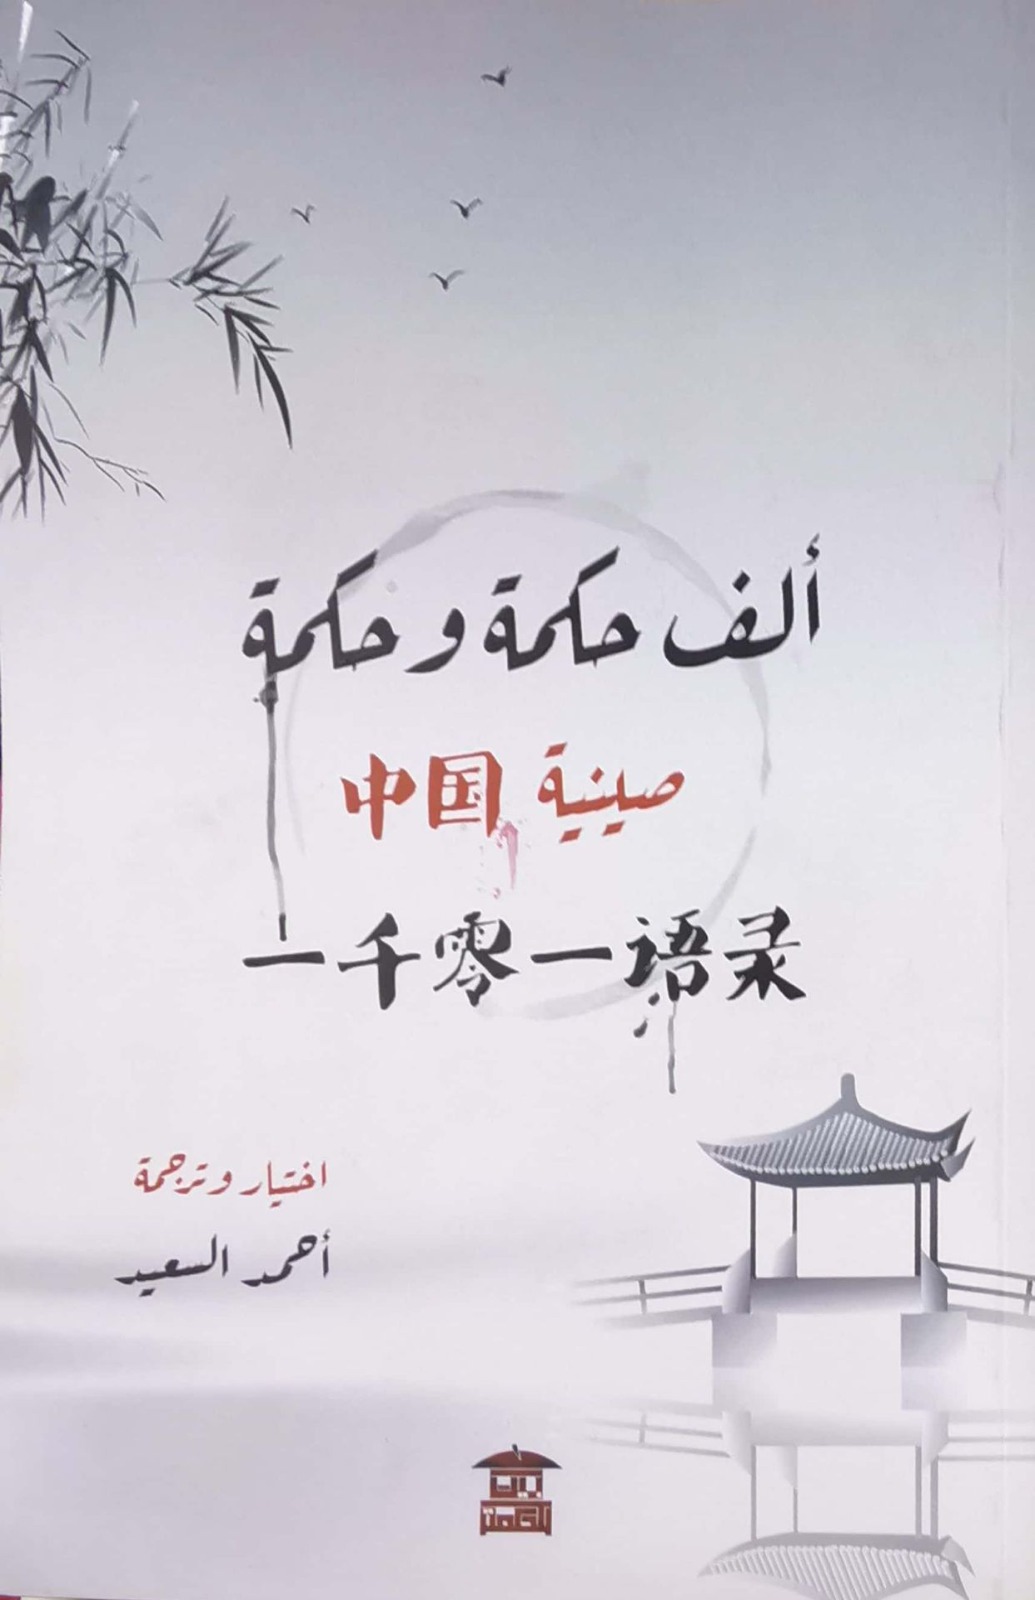 ألف حكمة و حكمة
صينية 中国
一千零一语录
اختيار وترجمة
أحمد السعيد
بيت
الحكمة